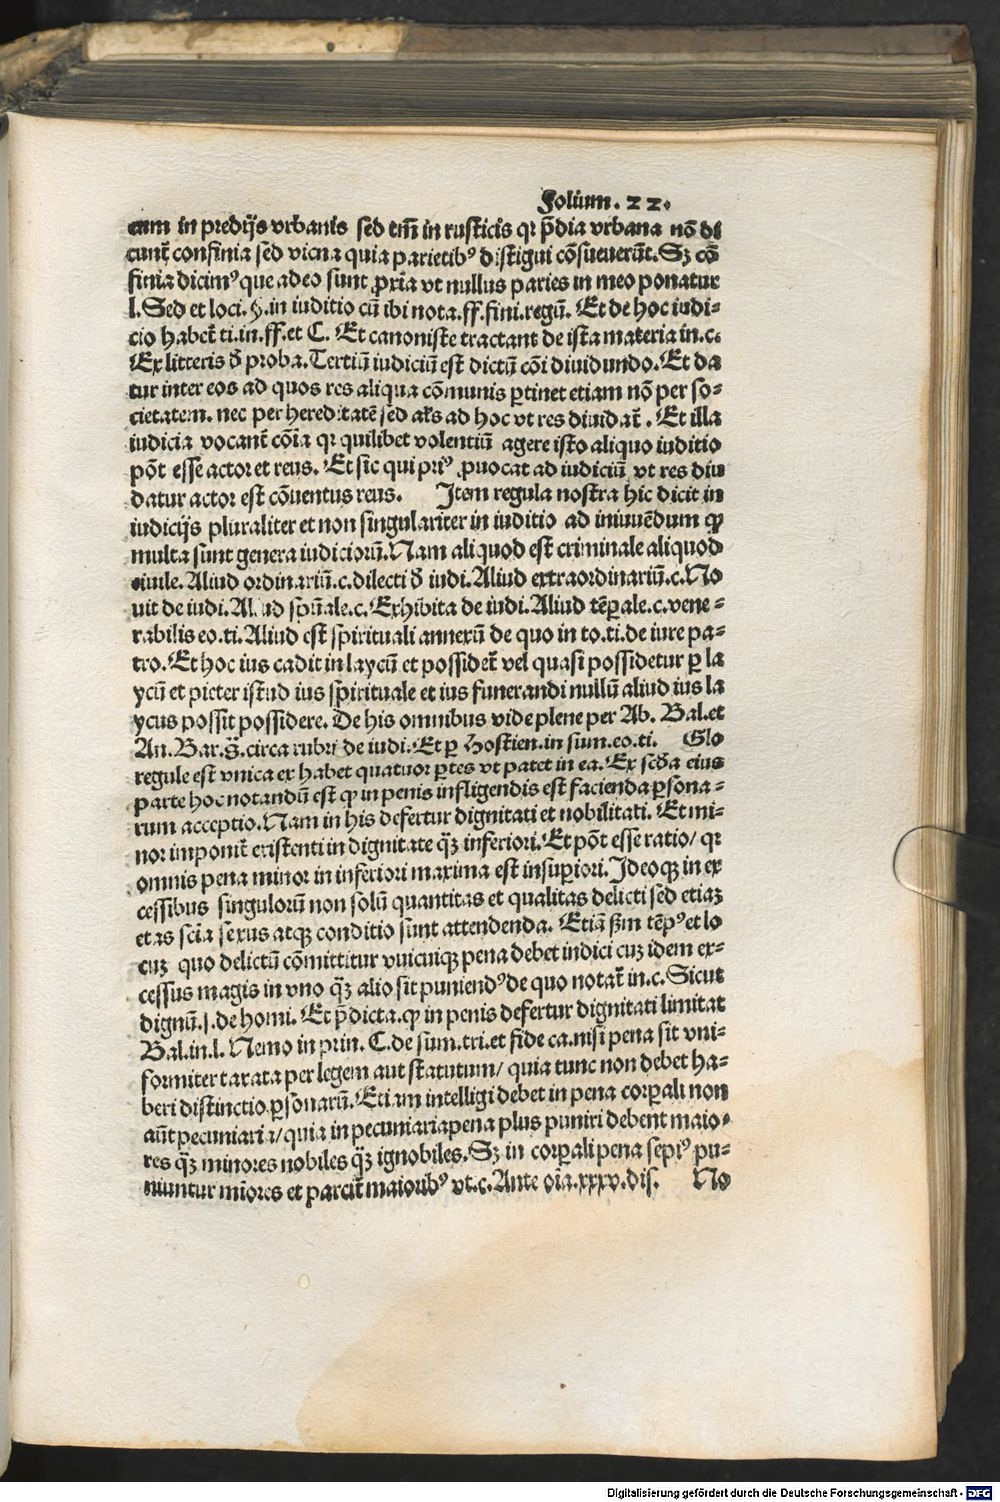 Folium. 22.
cum in predijs vrbanis sed tm̄ in rusticis qr p̄dia vrbana nō di
cunt̄ confinia sed vicina quia parietibꝰ distigui cōsueuerūt. Sꝫ cō
finia dicimꝰ que adeo sunt ꝓxīa vt nullus paries in meo ponatur
l. Sed et loci. §. in iuditio cū ibi nota. ff. fini. regū. Et de hoc iudi⸗
cio habet̄ ti. in. ff. et C. Et canoniste tractant de ista materia in. c.
Ex litteris đ proba. Tertiū iudiciū est dictū cōi diuidundo. Et da
tur inter eos ad quos res aliqua cōmunis ꝑtinet etiam nō per so⸗
cietatem. nec per hereditatē sed al̓s ad hoc vt res diuidat̄. Et illa
iudicia vocant̄ cōia qr quilibet volentiū agere isto aliquo iuditio
pōt esse actor et reus. Et sic qui priꝰ ꝓuocat ad iudiciū vt res diui
datur actor est cōuentus reus. Item regula nostra hic dicit in
iudicijs pluraliter et non singulariter in iuditio ad innuēdum ꝙ
multa sunt genera iudiciorū. Nam aliquod est criminale aliquod
ciuile. Aliud ordinariū. c. dilecti đ iudi. Aliud extraordinariū. c. No
uit de iudi. Aliud spūale. c. Exhibita de iudi. Aliud tēꝑale. c. vene⸗
rabilis eo. ti. Aliud est spirituali annexū de quo in to. ti. de iure pa⸗
tro. Et hoc ius cadit in laycū et possidet̄ vel quasi possidetur ꝑ la
ycū et preter istud ius spirituale et ius funerandi nullū aliud ius la
ycus possit possidere. De his omnibus vide plene per Ab. Bal. et
An. Bar. circa rubri de iudi. Et ꝑ Hostien. in sum. eo. ti. Glo
regule est vnica ex habet quatuor ꝑtes vt patet in ea. Ex scđa eius
parte hoc notandū est ꝙ in penis infligendis est facienda ꝑsona⸗
rum acceptio. Nam in his defertur dignitati et nobilitati. Et mi⸗
nor imponit̄ existenti in dignitate q̄ꝫ inferiori. Et pōt esse ratio/ qr
omnis pena minor in inferiori maxima est in suꝑiori. Ideoqꝫ in ex
cessibus singulorū non solū quantitas et qualitas delicti sed etiaꝫ
etas scia sexus atqꝫ conditio sunt attendenda. Etiā ẜm tēpꝰ et lo
cuꝫ quo delictū cōmittitur vnicuiqꝫ pena debet indici cuꝫ idem ex⸗
cessus magis in vno q̄ꝫ alio sit puniendꝰ de quo notat̄ in. c. Sicut
dignū. j. de homi. Et p̄dicta. ꝙ in penis defertur dignitati limitat
Bal. in. l. Nemo in prin. C. de sum. tri. et fide ca. nisi pena sit vni⸗
formiter taxata per legem aut statutum/ quia tunc non debet ha⸗
beri distinctio ꝑsonarū. Etiam intelligi debet in pena corꝑali non
aūt pecuniaria/ quia in pecuniaria pena plus puniri debent maio⸗
res q̄ꝫ minores nobiles q̄ꝫ ignobiles. Sꝫ in corꝑali pena sepiꝰ pu⸗
niuntur miores et parcit̄ maioribꝰ vt. c. Ante oīa. xxxv. dis. No
Digitalisierung gefördert durch die Deutsche Forschungsgemeinschaft - DFG